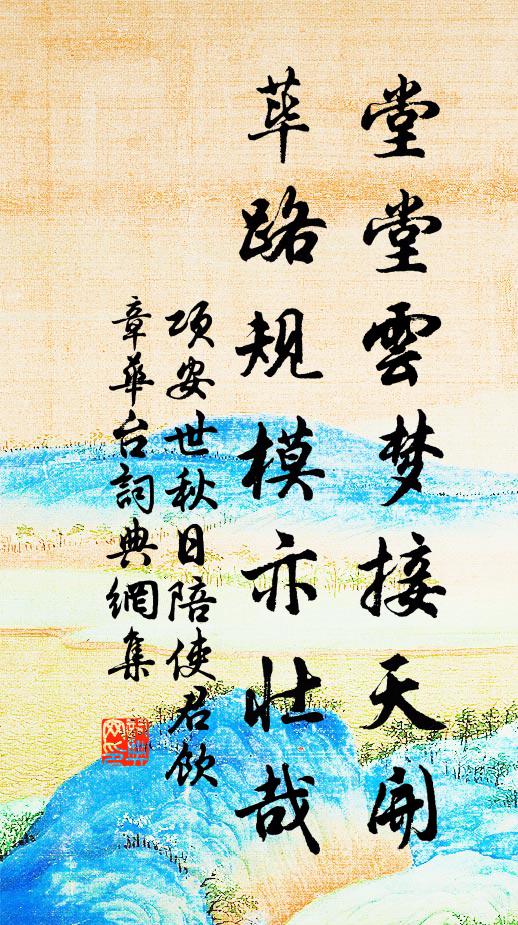 堂堂雲梦接天開
荜路規模亦壮哉
项安世秋日陪使君飲
章華台詞典網集